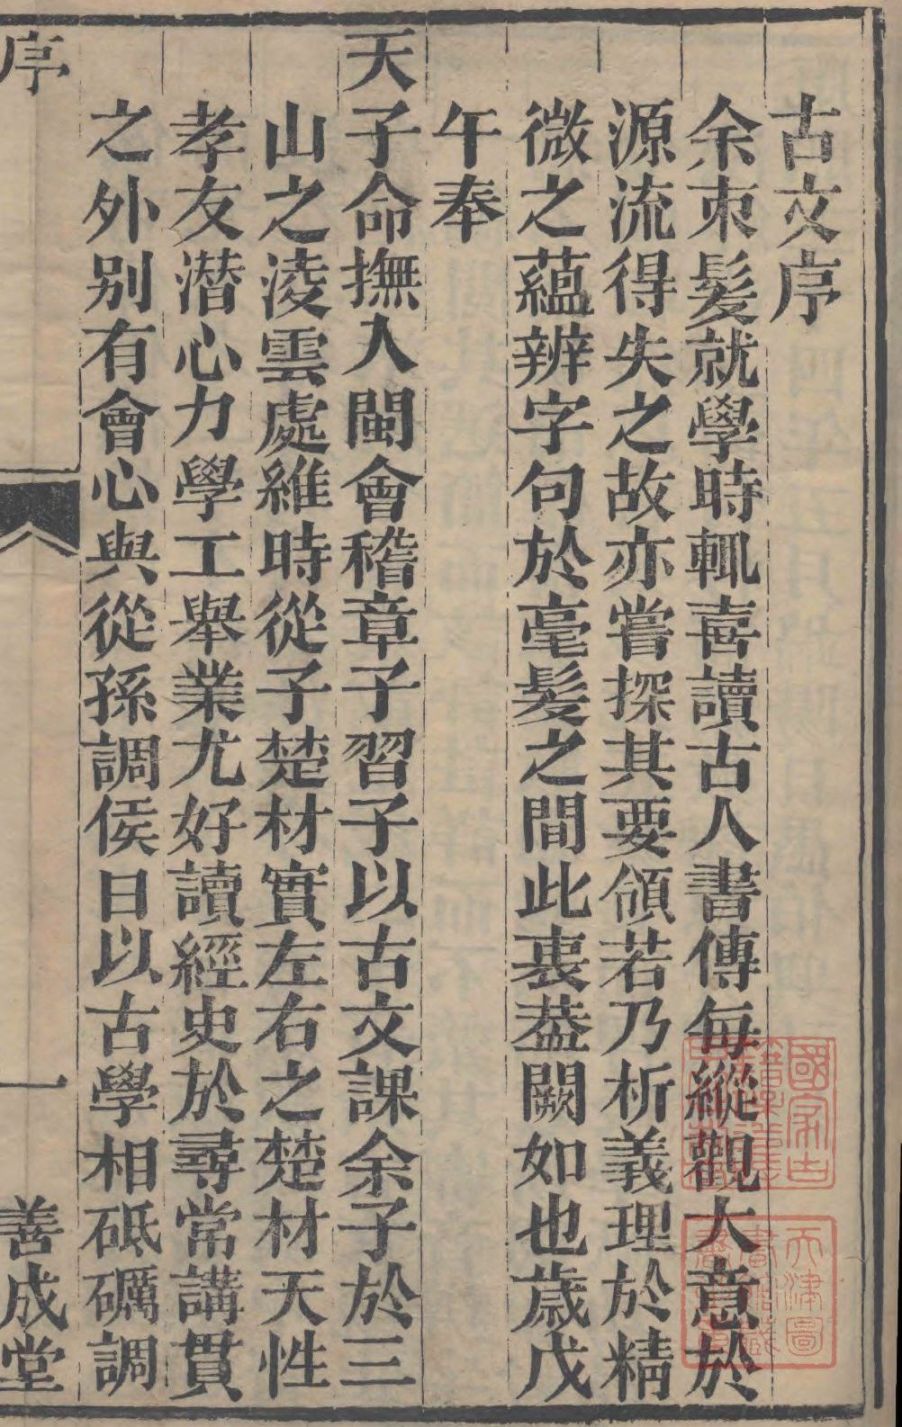 古文序
余束髮就學時輒喜讀古人書傳每縱觀大意於
源流得失之故亦嘗探其要領若乃析義理於精
微之蘊辨字句於毫髮之間此衷葢闕如也歲戊
午奉
天子命撫入閩會稽章子習子以古文課余子於三
山之淩雲處維時從子楚材實左右之楚材天性
孝友潛心力學工舉業尤好讀經史於尋常講貫
之外別有會心與從孫調侯日以古學相砥礪調
序
一
善成堂
天津圖